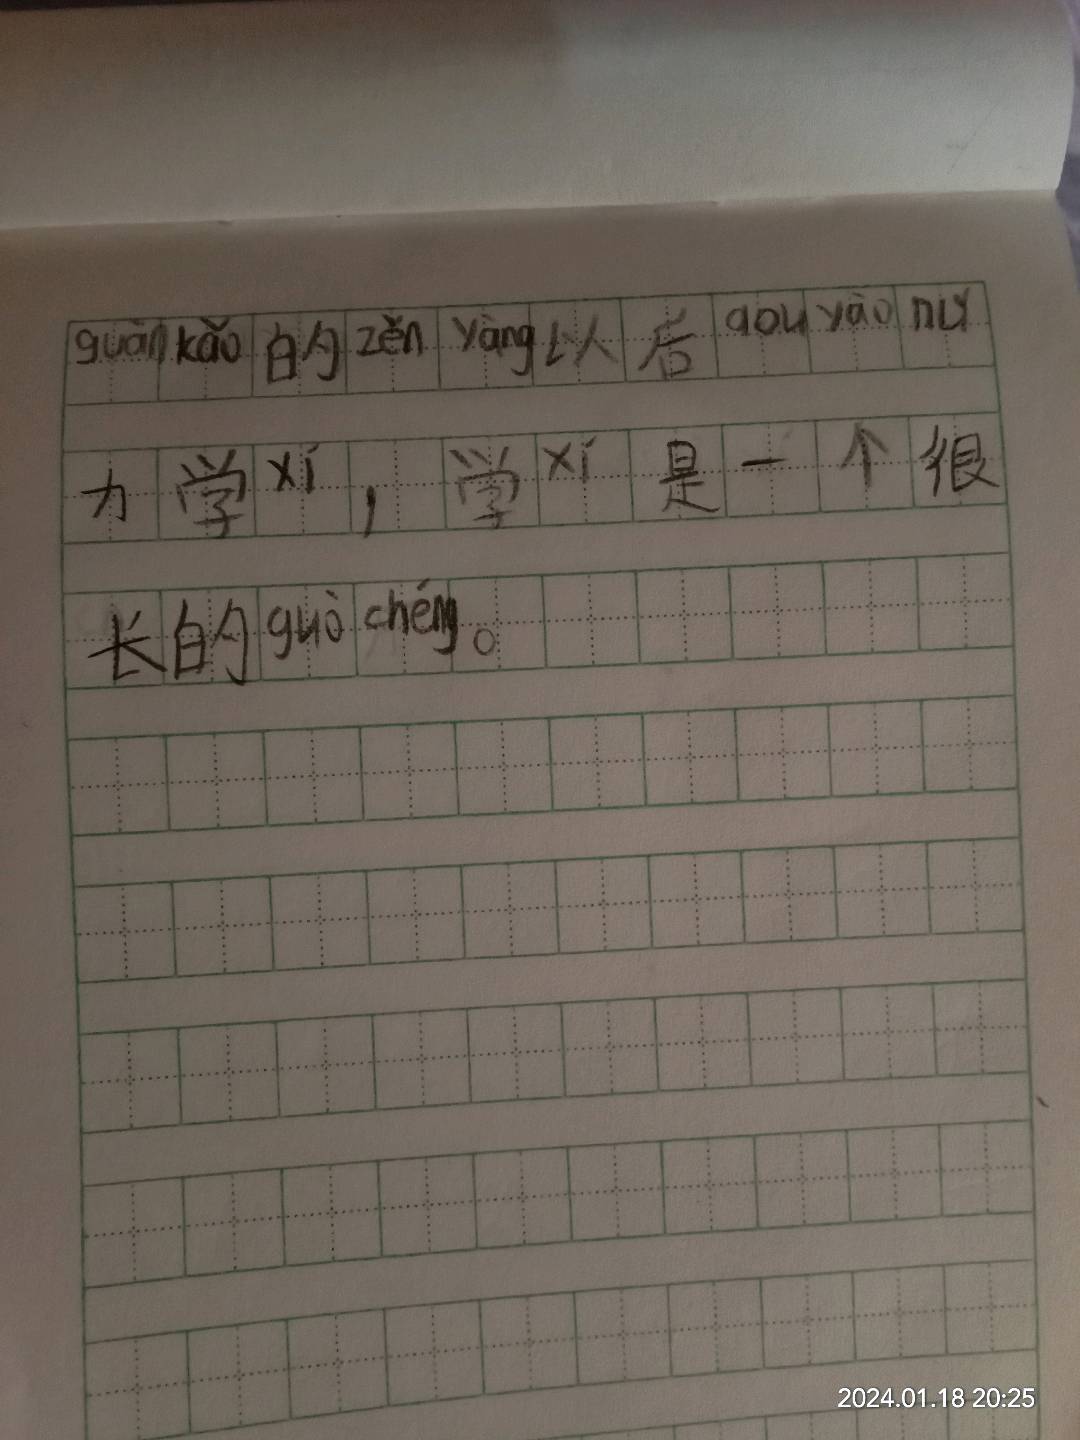 guǎnkǎo的zěnyàng以后douyàonǔ
力学xí，学xí是一个很
长的guòchéng。
2024.01.18 20:25